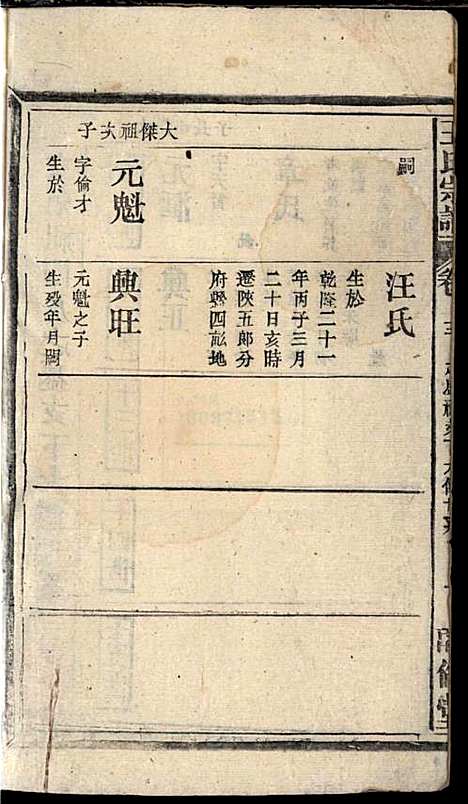 王氏宗譜
卷
嗣
大傑祖次子
元魁
字倫才
生於
汪氏
生於
乾隆二十一
年丙子三月
二十日亥時
遷陝五郎分
府縣四畝地
興旺
元魁之子
生歿年月闕